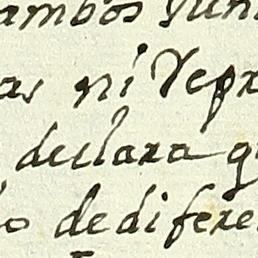 ambos jun
as ni Repr
declara q
do de difere